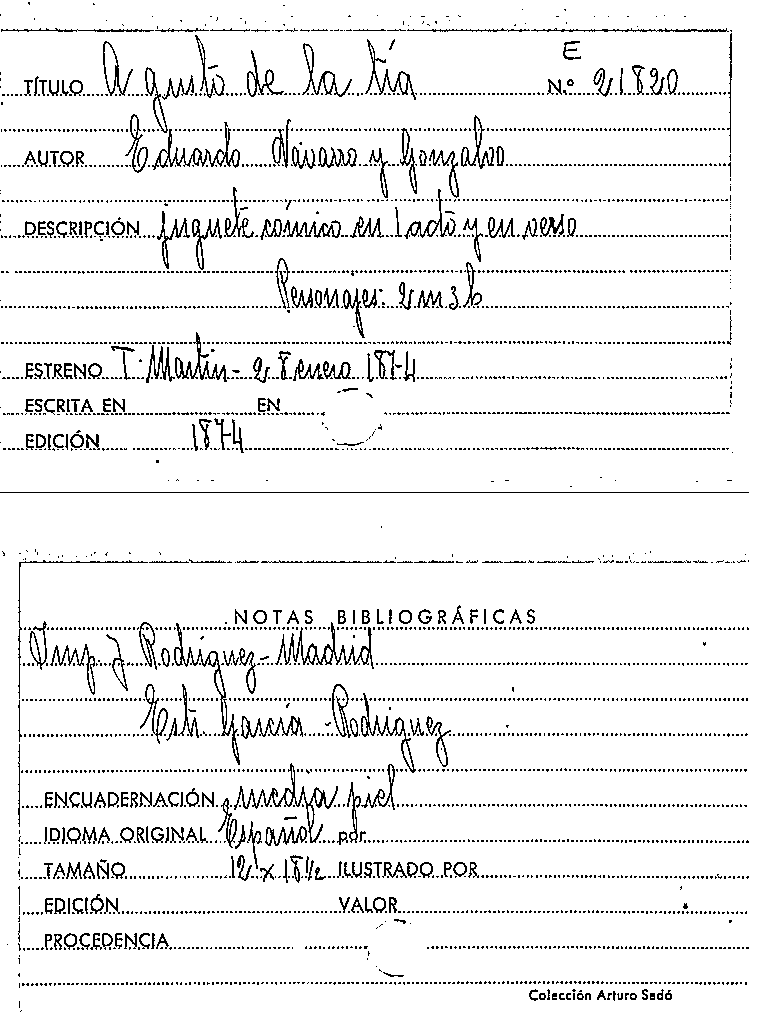 E
TÍTULO A gusto de la tía N.º 21820
AUTOR Eduardo Navarro y Gonzalvo
DESCRIPCIÓN juguete cómico en 1 acto y en verso
Personajes: 2 m 3 h
ESTRENO T. Martin - 28 enero 1874
ESCRITA EN EN
EDICIÓN 1874
NOTAS BIBLIOGRÁFICAS
Imp. J Rodriguez - Madrid
Estr. García - Rodriguez
ENCUADERNACIÓN media piel
IDIOMA ORIGINAL Español por
TAMAÑO 12 x 18½ ILUSTRADO POR
EDICIÓN VALOR
PROCEDENCIA
Colección Arturo Sedó